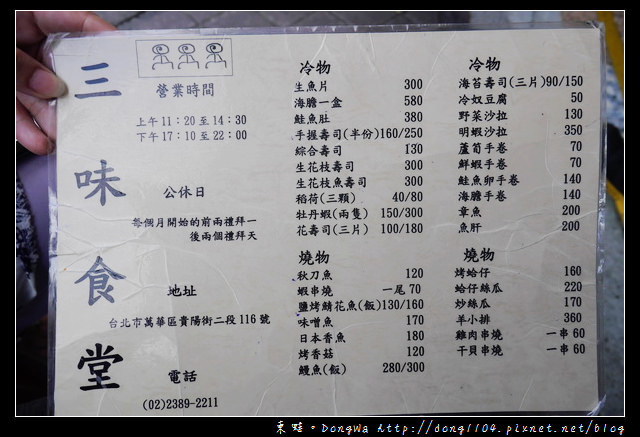 三味食堂
營業時間
上午11：20至14：30
下午17：10至22：00
公休日
每個月開始的前兩禮拜一
後兩個禮拜天
地址
台北市萬華區貴陽街二段116號
電話
(02)2389-2211
冷物
生魚片 300
海膽一盒 580
鮭魚肚 380
手握壽司(半份)160/250
綜合壽司 130
生花枝壽司 300
生花枝魚壽司 300
稻荷(三顆) 40/80
牡丹蝦(兩隻) 150/300
花壽司(三片) 100/180
燒物
秋刀魚 120
蝦串燒 一尾70
鹽烤鯖花魚(飯)130/160
味噌魚 170
日本香魚 180
烤香菇 120
鰻魚(飯) 280/300
冷物
海苔壽司(三片)90/150
冷奴豆腐 50
野菜沙拉 130
明蝦沙拉 350
蘆筍手卷 70
鮮蝦手卷 70
鮭魚卵手卷 140
海膽手卷 140
章魚 200
魚肝 200
燒物
烤蛤仔 160
蛤仔絲瓜 220
炒絲瓜 170
羊小排 360
雞肉串燒 一串60
干貝串燒 一串60
東蛙。Dongwa http://dong1104.pixnet.net/blog